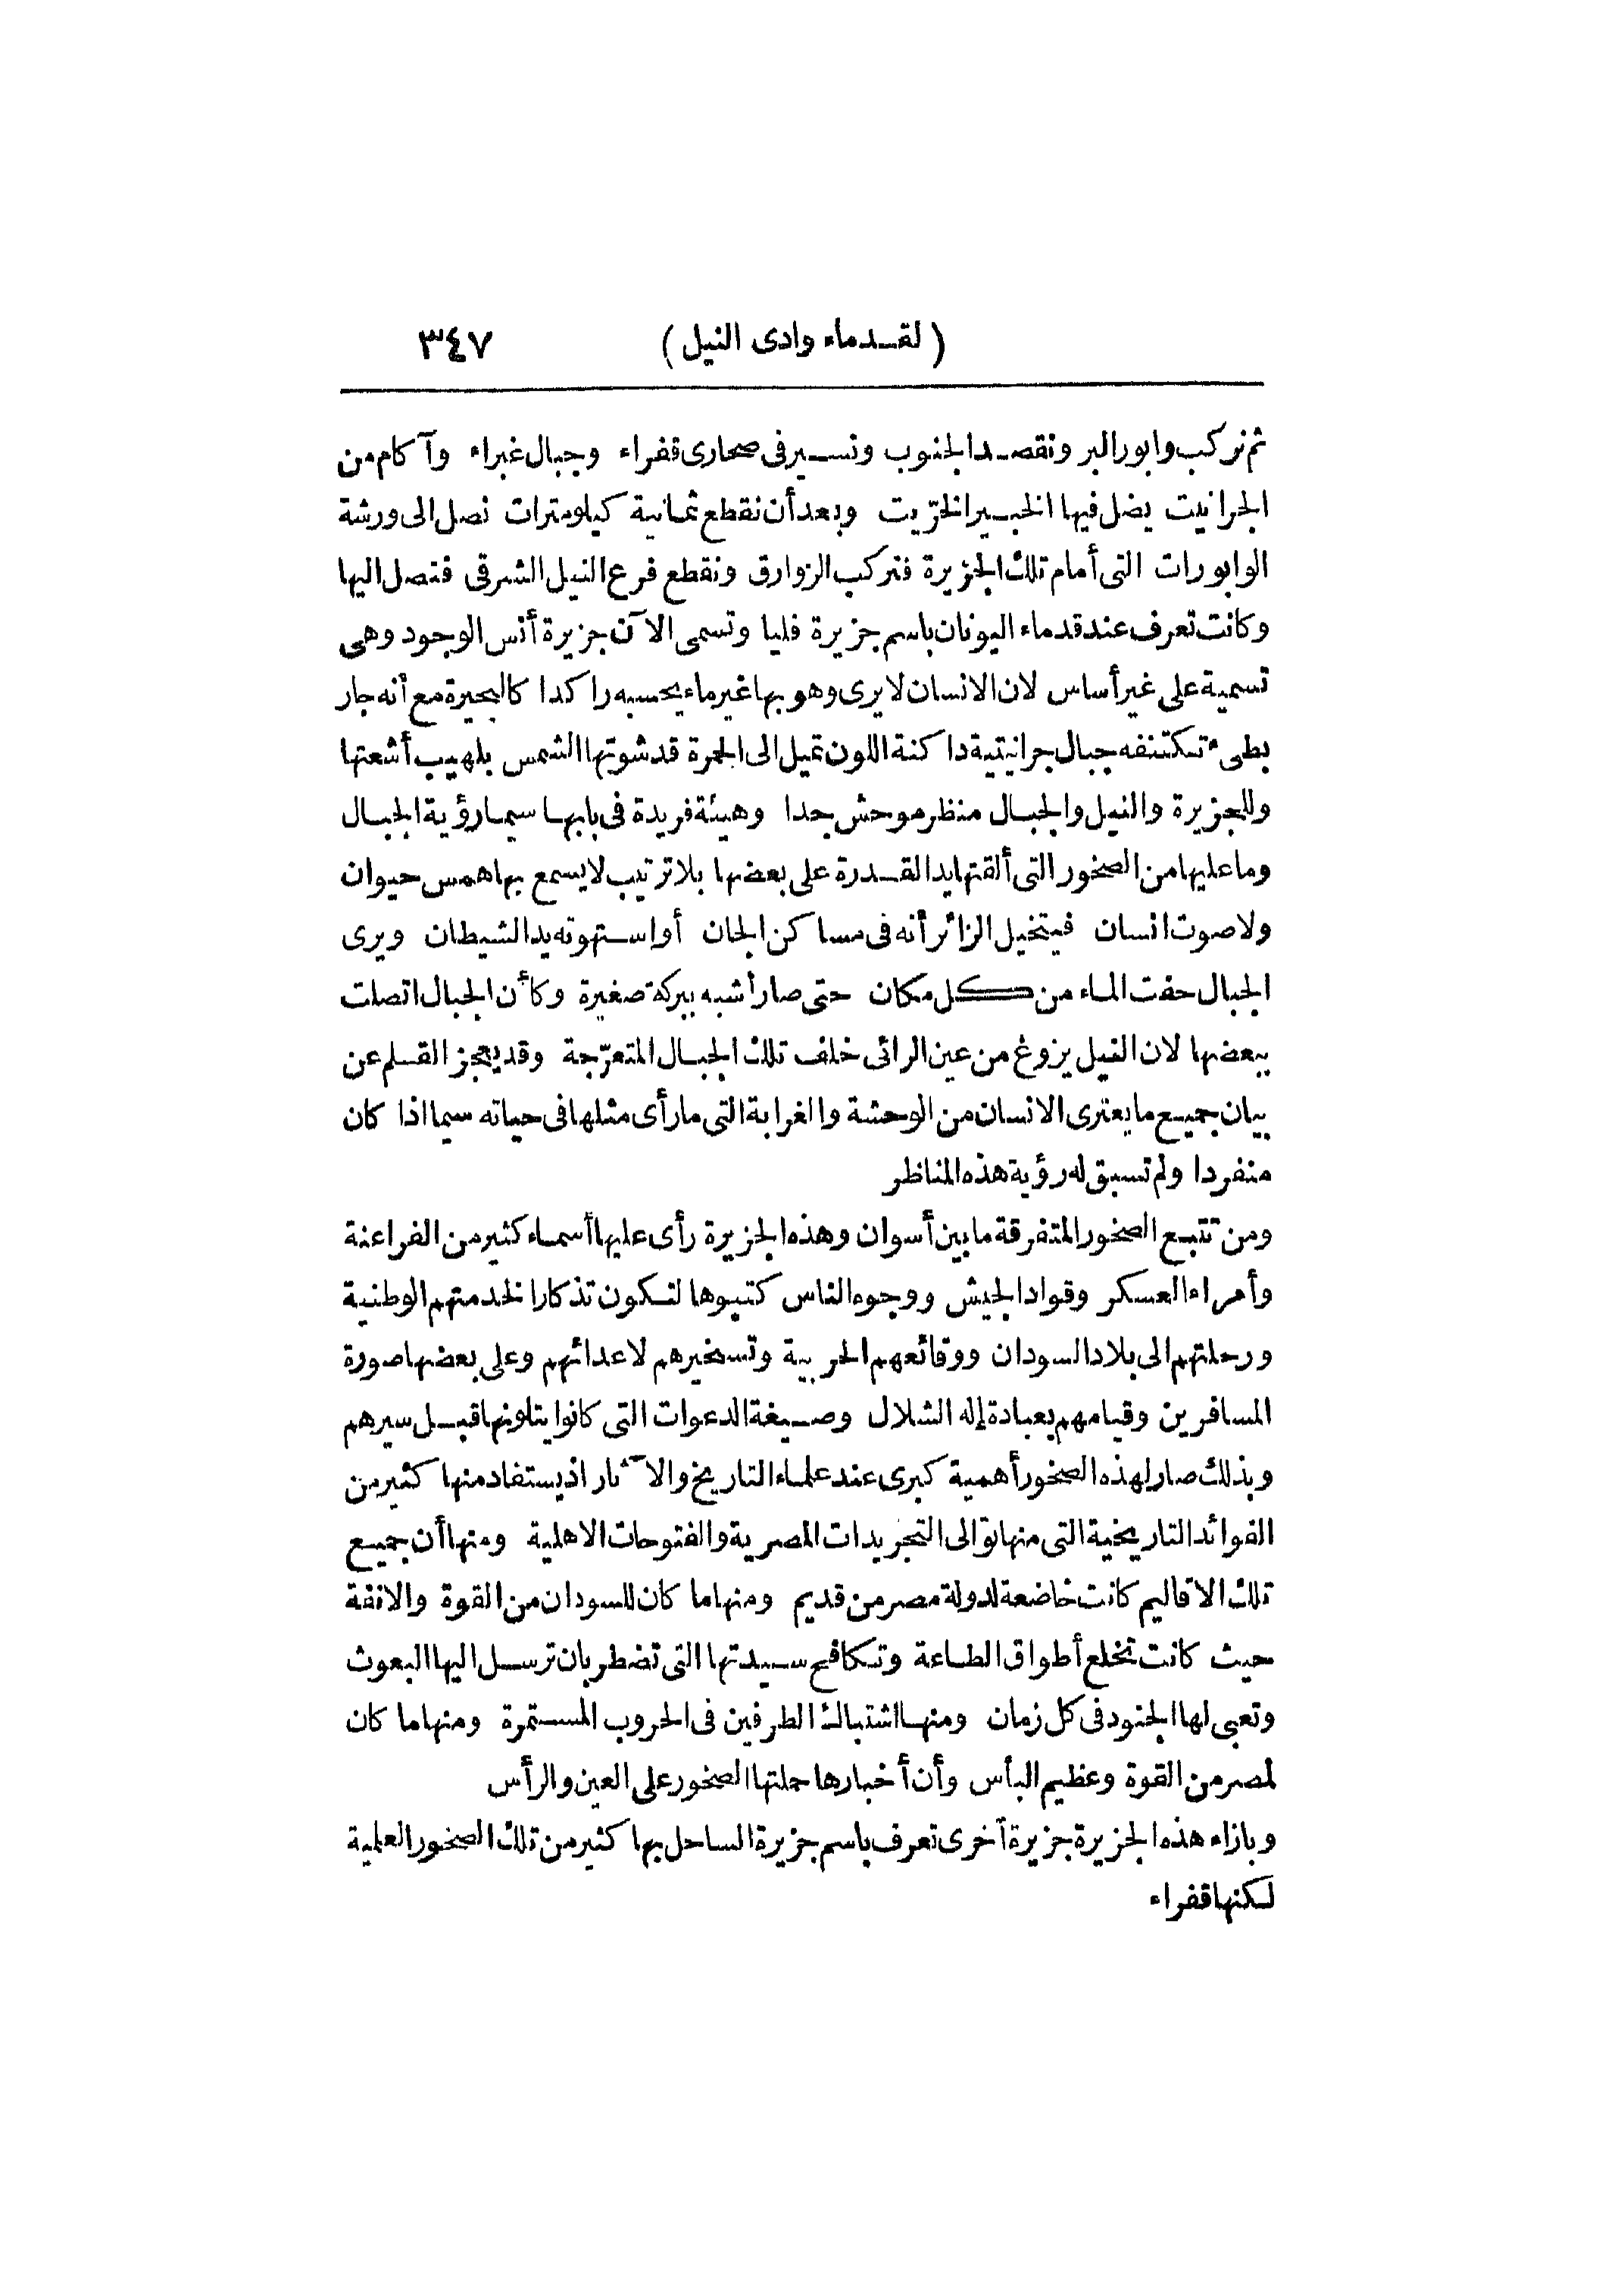 ( لقدماء وادى النيل ) ٣٤٧
ثم نركب وابور البر ونقصد الجنوب ونسير فى صحارى قفراء وجبال غبراء وآكام من
الجرانيت يضل فيها الخبير الخرّيت وبعد أن نقطع ثمانية كيلومترات نصل الى ورشة
الوابورات التى أمام تلك الجزيرة فنركب الزوارق ونقطع فرع النيل الشرقى فنصل اليها
وكانت تعرف عند قدماء اليونان باسم جزيرة فليا وتسمى الآن جزيرة أنس الوجود وهى
تسمية على غير أساس لان الانسان لا يرى وهو بها غير ماء يحسبه راكدا كالبحيرة مع أنه جار
بطىء تكتنفه جبال جرانيتية داكنة اللون تميل الى الحمرة قد شوتها الشمس بلهيب أشعتها
وللجزيرة والنيل والجبال منظر موحش جدا وهيئة فريدة فى بابها سيما رؤية الجبال
وما عليها من الصخور التى ألقتها يد القدرة على بعضها بلا ترتيب لا يسمع بها همس حيوان
ولا صوت انسان فيتخيل الزائر أنه فى مساكن الجان أو استهوته يد الشيطان ويرى
الجبال حفت الماء من كل مكان حتى صار أشبه ببركة صغيرة وكأن الجبال اتصلت
ببعضها لان النيل يزوغ من عين الرائى خلف تلك الجبال المتعرّجة وقد يعجز القلم عن
بيان جميع ما يعترى الانسان من الوحشة والغرابة التى ما رأى مثلها فى حياته سيما اذا كان
منفردا ولم تسبق له رؤية هذه المناظر
ومن تتبع الصخور المتفرقة ما بين أسوان وهذه الجزيرة رأى عليها أسماء كثير من الفراعنة
وأمراء العسكر وقواد الجيش ووجوه الناس كتبوها لتكون تذكارا لخدمتهم الوطنية
ورحلتهم الى بلاد السودان ووقائعهم الحربية وتسخيرهم لاعدائهم وعلى بعضها صورة
المسافرين وقيامهم بعبادة إله الشلال وصيغة الدعوات التى كانوا يتلونها قبل سيرهم
وبذلك صار لهذه الصخور أهمية كبرى عند علماء التاريخ والآثار اذ يستفاد منها كثير من
الفوائد التاريخية التى منها توالى التجريدات المصرية والفتوحات الاهلية ومنها أن جميع
تلك الاقاليم كانت خاضعة لدولة مصر من قديم ومنها ما كان للسودان من القوة والانفة
حيث كانت تخلع أطواق الطاعة وتكافح سيدتها التى تضطر بان ترسل اليها البعوث
وتعبى لها الجنود فى كل زمان ومنها اشتباك الطرفين فى الحروب المستمرة ومنها ما كان
لمصر من القوة وعظيم البأس وأن أخبارها حملتها الصخور على العين والرأس
وبازاء هذه الجزيرة جزيرة أخرى تعرف باسم جزيرة الساحل بها كثير من تلك الصخور العلمية
لكنها قفراء